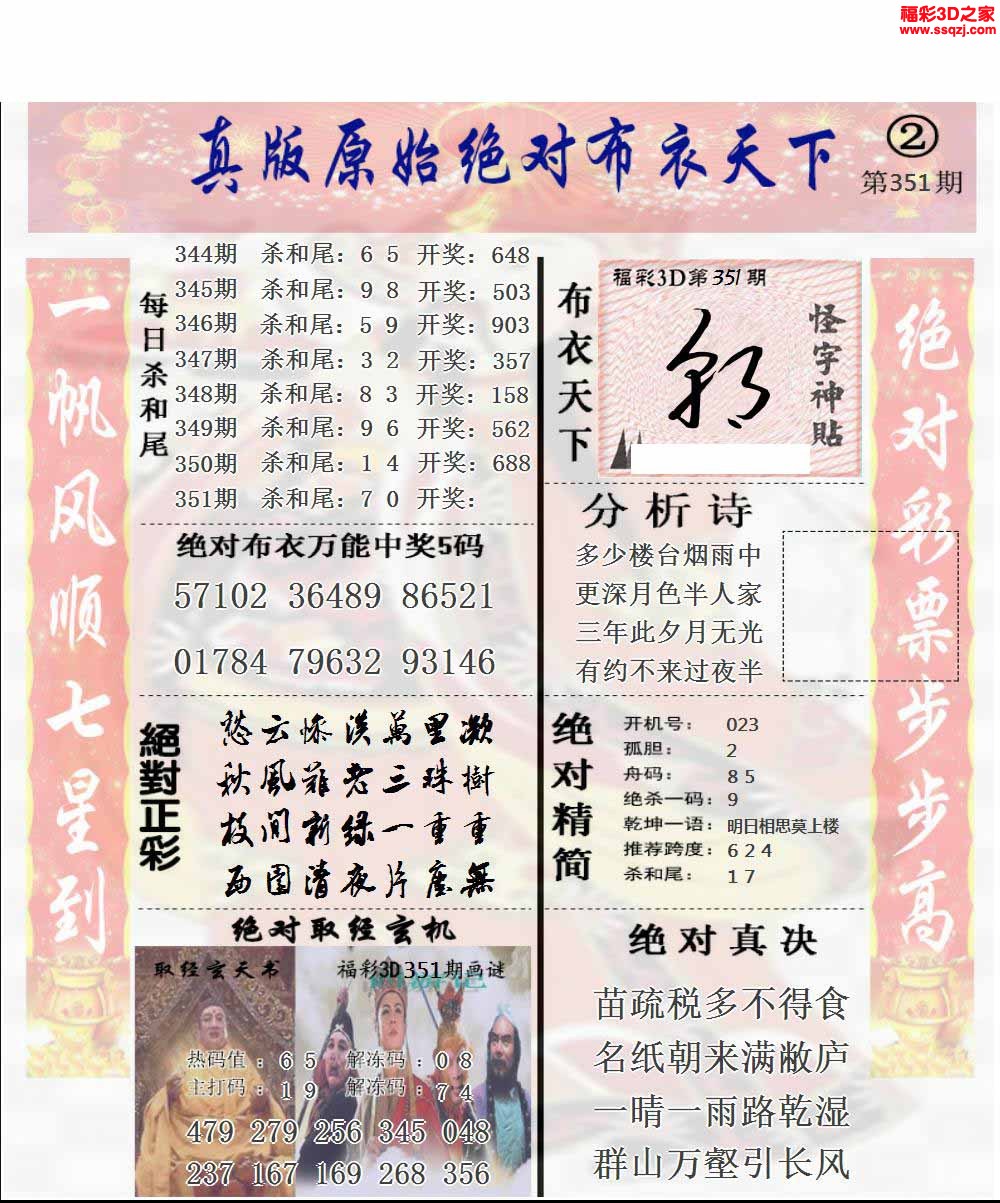 福彩3D之家
www.ssqzj.com
真版原始绝对布衣天下
②
第351期
一帆风顺七星到
每日杀和尾
344期 杀和尾：6 5 开奖：648
345期 杀和尾：9 8 开奖：503
346期 杀和尾：5 9 开奖：903
347期 杀和尾：3 2 开奖：357
348期 杀和尾：8 3 开奖：158
349期 杀和尾：9 6 开奖：562
350期 杀和尾：1 4 开奖：688
351期 杀和尾：7 0 开奖：
绝对布衣万能中奖5码
57102 36489 86521
01784 79632 93146
絕對正彩
愁云惨淡萬里凝
秋風菲老三珠樹
枝间新绿一重重
西園清夜片塵無
绝对取经玄机
取经玄天书
福彩3D351期画谜
热码值：6 5 解冻码：0 8
主打码：1 9 解冻码：7 4
479 279 256 345 048
237 167 169 268 356
布衣天下
福彩3D第351期
怪字神貼
分析诗
多少楼台烟雨中
更深月色半人家
三年此夕月无光
有约不来过夜半
绝对精简
开机号：023
孤胆：2
舟码：8 5
绝杀一码：9
乾坤一语：明日相思莫上楼
推荐跨度：6 2 4
杀和尾：1 7
绝对真决
苗疏税多不得食
名纸朝来满敝庐
一晴一雨路乾湿
群山万壑引长风
绝对彩票步步高